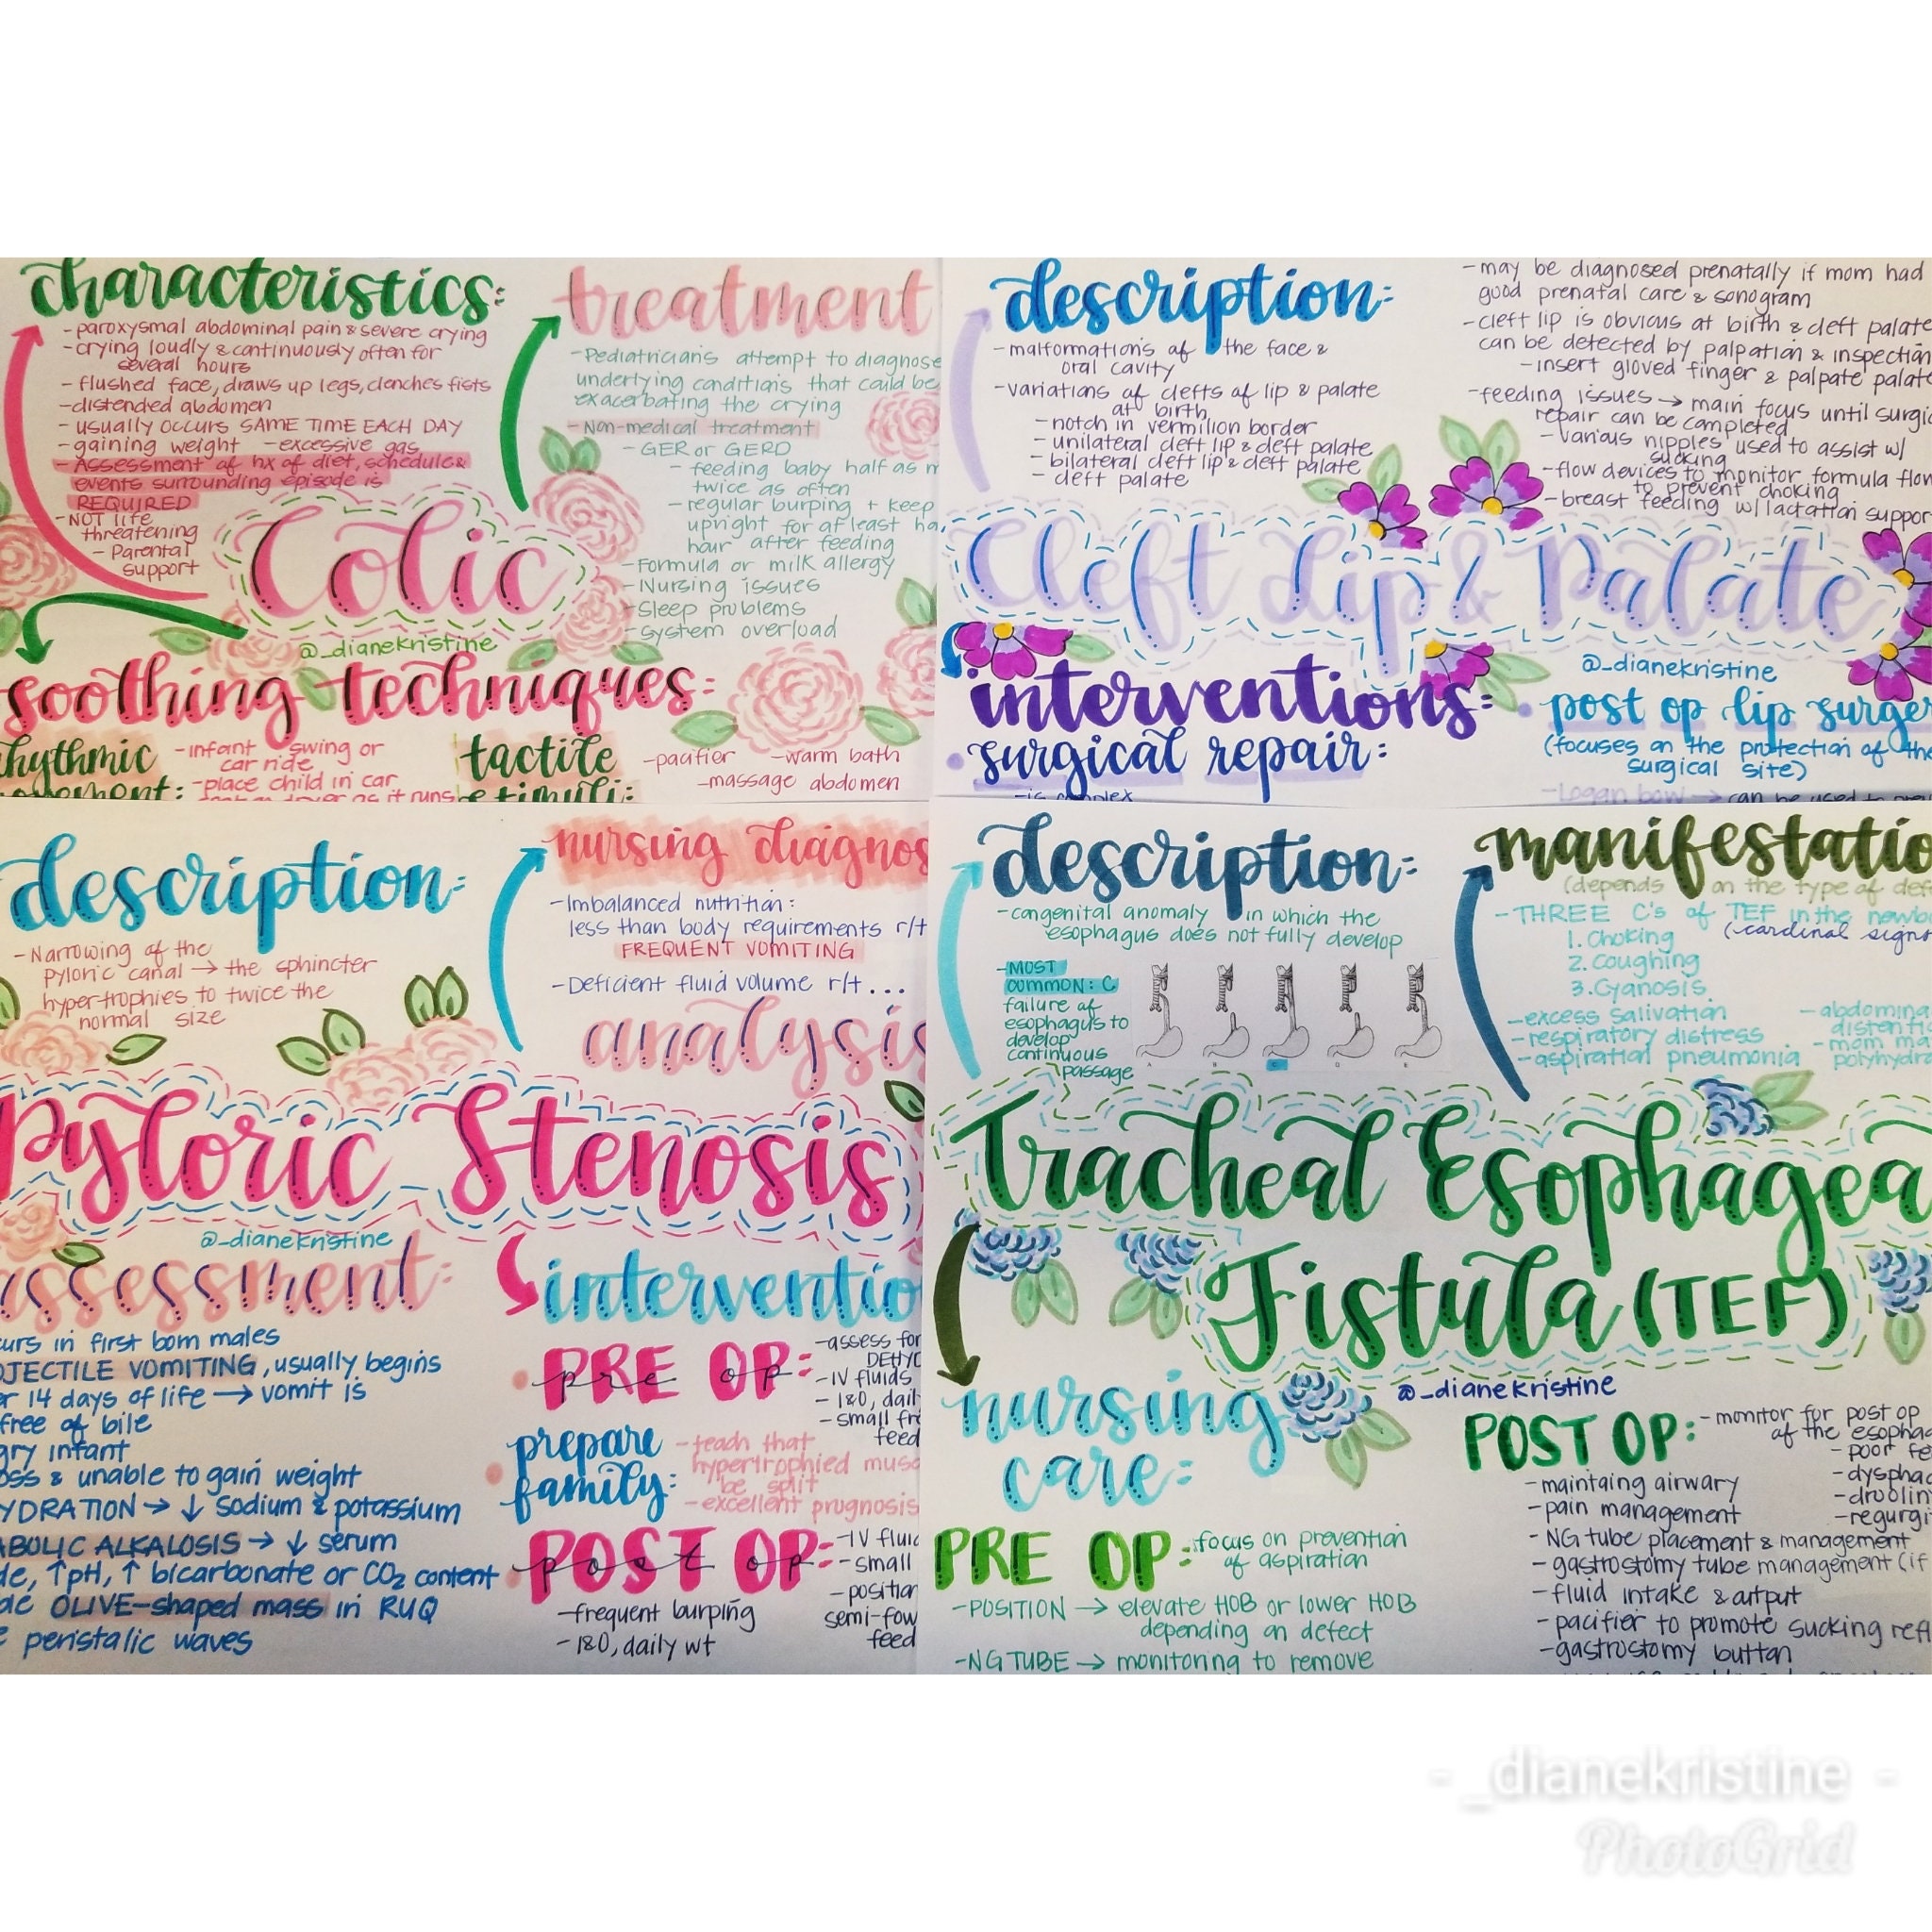 characteristics:
- paroxysmal abdominal pain & severe crying
- crying loudly & continuously often for
several hours
- flushed face, draws up legs, clenches fists
- distended abdomen
- usually occurs SAME TIME EACH DAY
- gaining weight - excessive gas
- Assessment of hx of diet, schedule &
events surrounding episode is
REQUIRED
- NOT life
threatening
- Parental
support
treatment
- Pediatricians attempt to diagnose
underlying conditions that could be
exacerbating the crying
- Non-medical treatment
- GER or GERD
- feeding baby half as m
twice as often
- regular burping + keep
upright for at least ha
hour after feeding
- Formula or milk allergy
- Nursing issues
- Sleep problems
- System overload
Colic
@_dianekristine
soothing techniques:
hythmic
ovement:
- infant swing or
car ride
- place child in car
as it runs
tactile
stimuli:
- pacifier - warm bath
- massage abdomen
description:
- malformations of the face &
oral cavity
- variations of clefts of lip & palate
at birth
- notch in vermilion border
- unilateral cleft lip & cleft palate
- bilateral cleft lip & cleft palate
- cleft palate
- may be diagnosed prenatally if mom had
good prenatal care & sonogram
- cleft lip is obvious at birth & cleft palate
can be detected by palpation & inspection
- insert gloved finger & palpate palate
- feeding issues → main focus until surgic
repair can be completed
- various nipples used to assist w/
sucking
- flow devices to monitor formula flow
to prevent choking
- breast feeding w/ lactation suppor
Cleft Lip & Palate
@_dianekristine
interventions:
surgical repair:
- is complex
post op lip surger
(focuses on the protection of the
surgical site)
- Logan bow → can be used to prev
description:
- Narrowing of the
pyloric canal → the sphincter
hypertrophies to twice the
normal size
nursing diagnos
- Imbalanced nutrition:
less than body requirements r/t
FREQUENT VOMITING
- Deficient fluid volume r/t...
analysis
Pyloric Stenosis
@_dianekristine
assessment:
urs in first born males
OJECTILE VOMITING, usually begins
r 14 days of life → vomit is
free of bile
gry infant
oss & unable to gain weight
YDRATION → ↓ sodium & potassium
ABOLIC ALKALOSIS → ↓ serum
de, ↑pH, ↑ bicarbonate or CO2 content
ble OLIVE-shaped mass in RUQ
e peristalic waves
interventio
PRE OP:
pre op
- assess for
DEHYD
- IV fluids
- I&O, dail
- small fre
feed
prepare
family:
- teach that
hypertrophied musc
be split
- excellent prognosis
POST OP:
post op
- IV fluid
- small
- position
semi-fow
feed
- frequent burping
- I&O, daily wt
description:
- congenital anomaly in which the
esophagus does not fully develop
- MOST
COMMON: C
failure of
esophagus to
develop
continuous
passage
manifestatio
(depends on the type of def
- THREE C's of TEF in the newbo
(cardinal signs
1. Choking
2. Coughing
3. Cyanosis
- excess salivation
- respiratory distress
- aspiration pneumonia
- abdomina
distenti
- mom ma
polyhydra
Tracheal Esophagea
Fistula (TEF)
@_dianekristine
nursing
care:
PRE OP:
focus on prevention
of aspiration
- POSITION → elevate HOB or lower HOB
depending on defect
- NG TUBE → monitoring to remove
POST OP:
- monitor for post op
of the esophag
- poor fe
- dysphag
- droolin
- regurgi
- maintaing airwary
- pain management
- NG tube placement & management
- gastrostomy tube management (if
- fluid intake & output
- pacifier to promote sucking refl
- gastrostomy button
- _dianekristine -
PhotoGrid